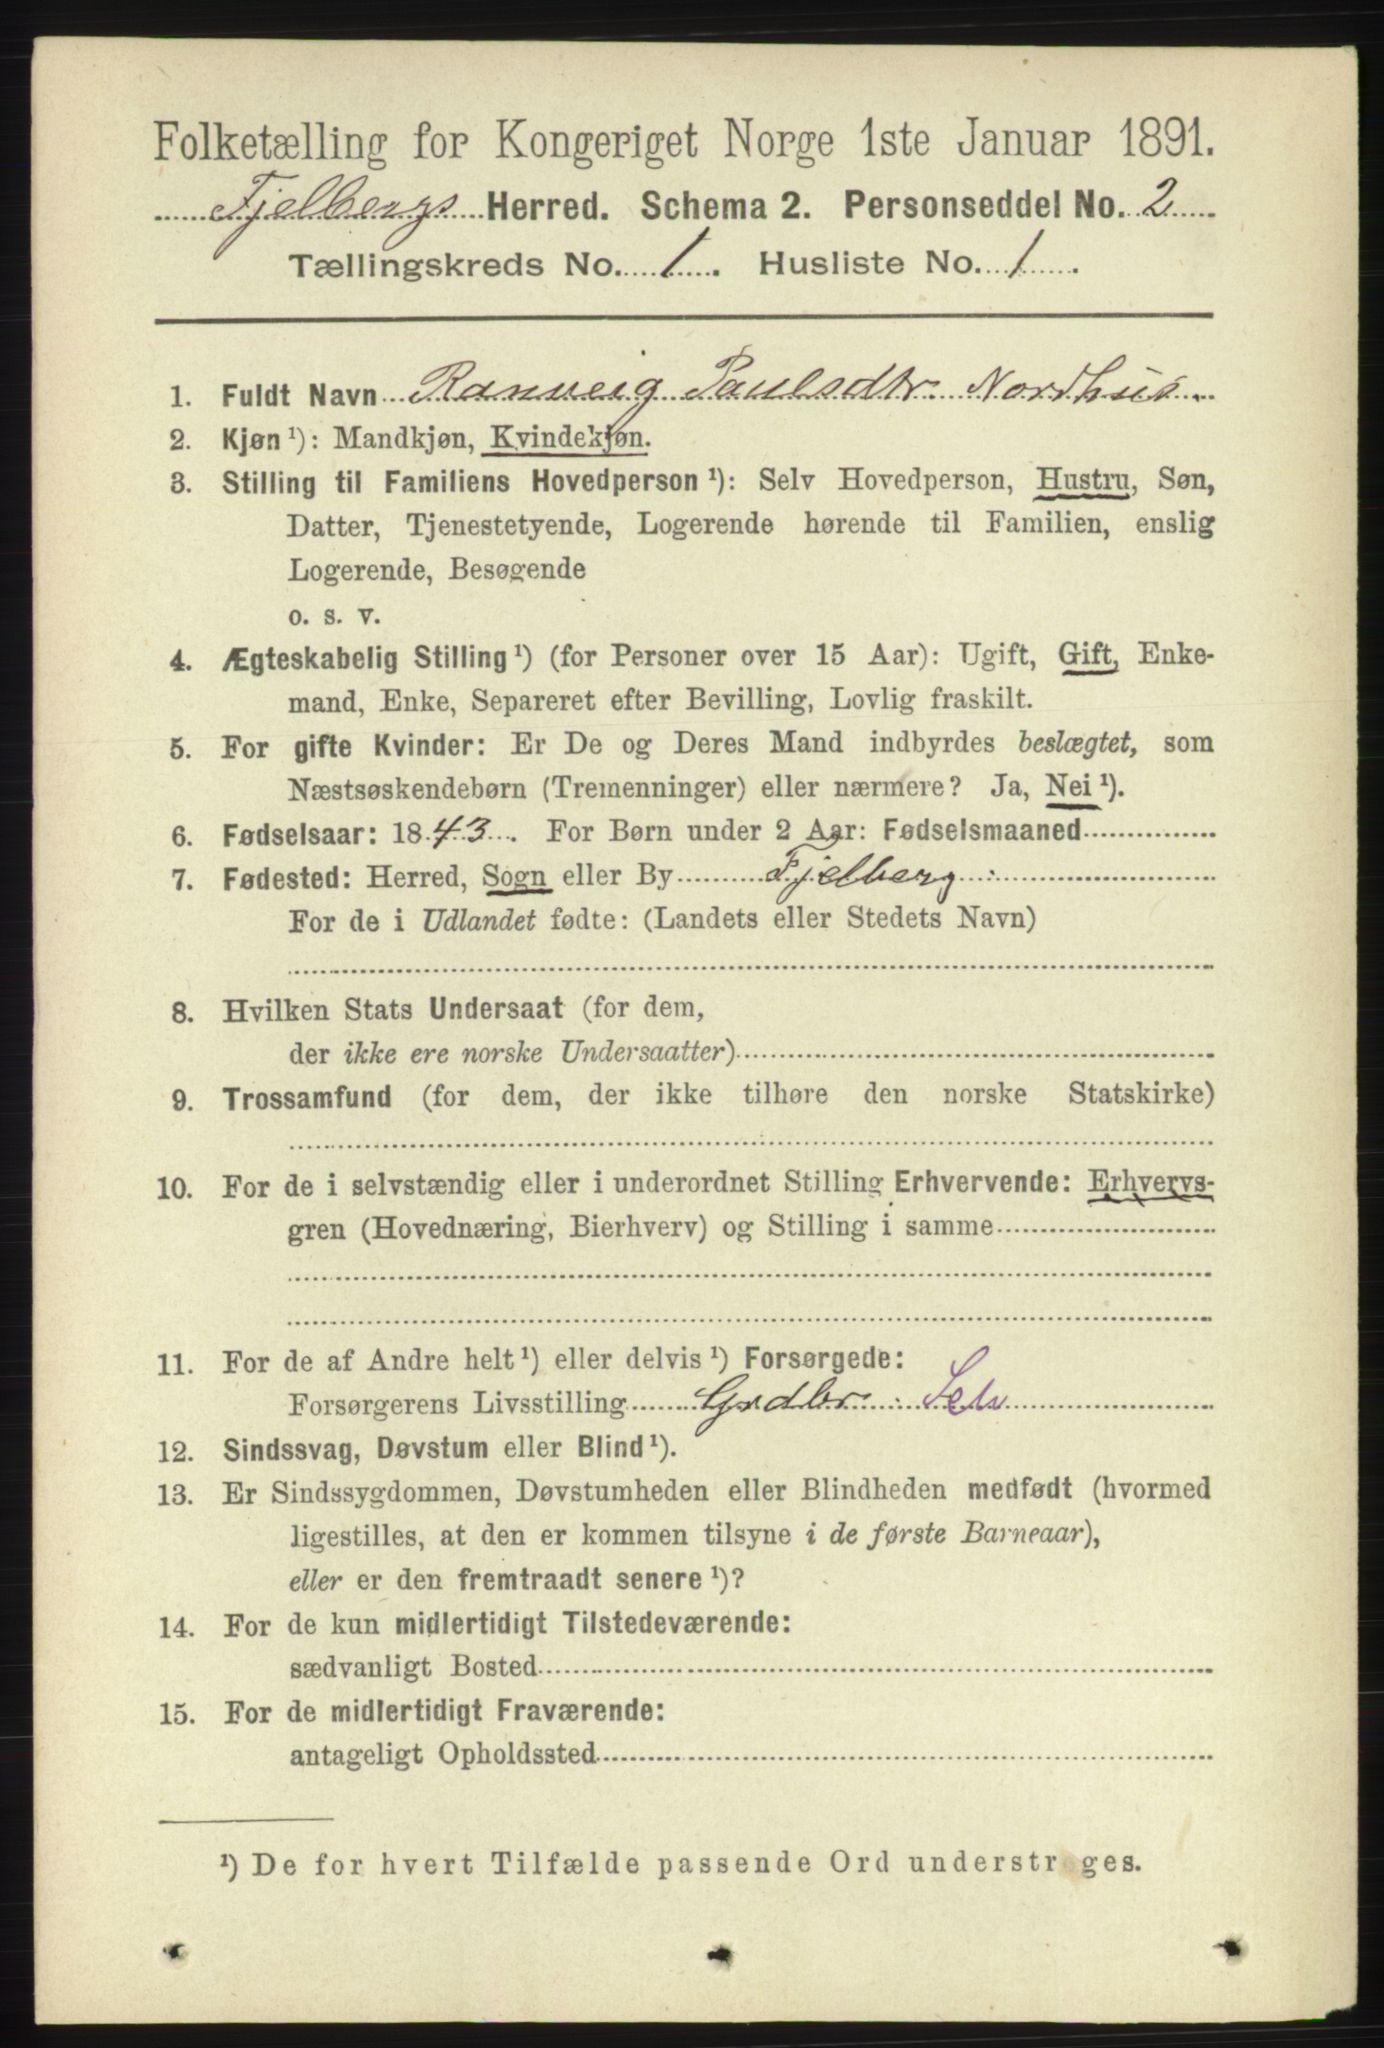 Folketælling for Kongeriget Norge 1ste Januar 1891.
Fjelbergs Herred. Schema 2. Personseddel No. 2
Tællingskreds No. 1. Husliste No. 1.
1. Fuldt Navn Ranveig Paulsdtr. Nordhus.
2. Kjøn ¹): Mandkjøn, Kvindekjøn.
3. Stilling til Familiens Hovedperson ¹): Selv Hovedperson, Hustru, Søn,
Datter, Tjenestetyende, Logerende hørende til Familien, enslig
Logerende, Besøgende
o. s. v.
4. Ægteskabelig Stilling ¹) (for Personer over 15 Aar): Ugift, Gift, Enke-
mand, Enke, Separeret efter Bevilling, Lovlig fraskilt.
5. For gifte Kvinder: Er De og Deres Mand indbyrdes beslægtet, som
Næstsøskendebørn (Tremenninger) eller nærmere? Ja, Nei ¹).
6. Fødselsaar: 1843. For Børn under 2 Aar: Fødselsmaaned
7. Fødested: Herred, Sogn eller By Fjelberg
For de i Udlandet fødte: (Landets eller Stedets Navn)
8. Hvilken Stats Undersaat (for dem,
der ikke ere norske Undersaatter)
9. Trossamfund (for dem, der ikke tilhøre den norske Statskirke)
10. For de i selvstændig eller i underordnet Stilling Erhvervende: Erhvervs-
gren (Hovednæring, Bierhverv) og Stilling i samme
11. For de af Andre helt ¹) eller delvis ¹) Forsørgede:
Forsørgerens Livsstilling Grdbr. Selv
12. Sindssvag, Døvstum eller Blind ¹).
13. Er Sindssygdommen, Døvstumheden eller Blindheden medfødt (hvormed
ligestilles, at den er kommen tilsyne i de første Barneaar),
eller er den fremtraadt senere ¹)?
14. For de kun midlertidigt Tilstedeværende:
sædvanligt Bosted
15. For de midlertidigt Fraværende:
antageligt Opholdssted
¹) De for hvert Tilfælde passende Ord understreges.